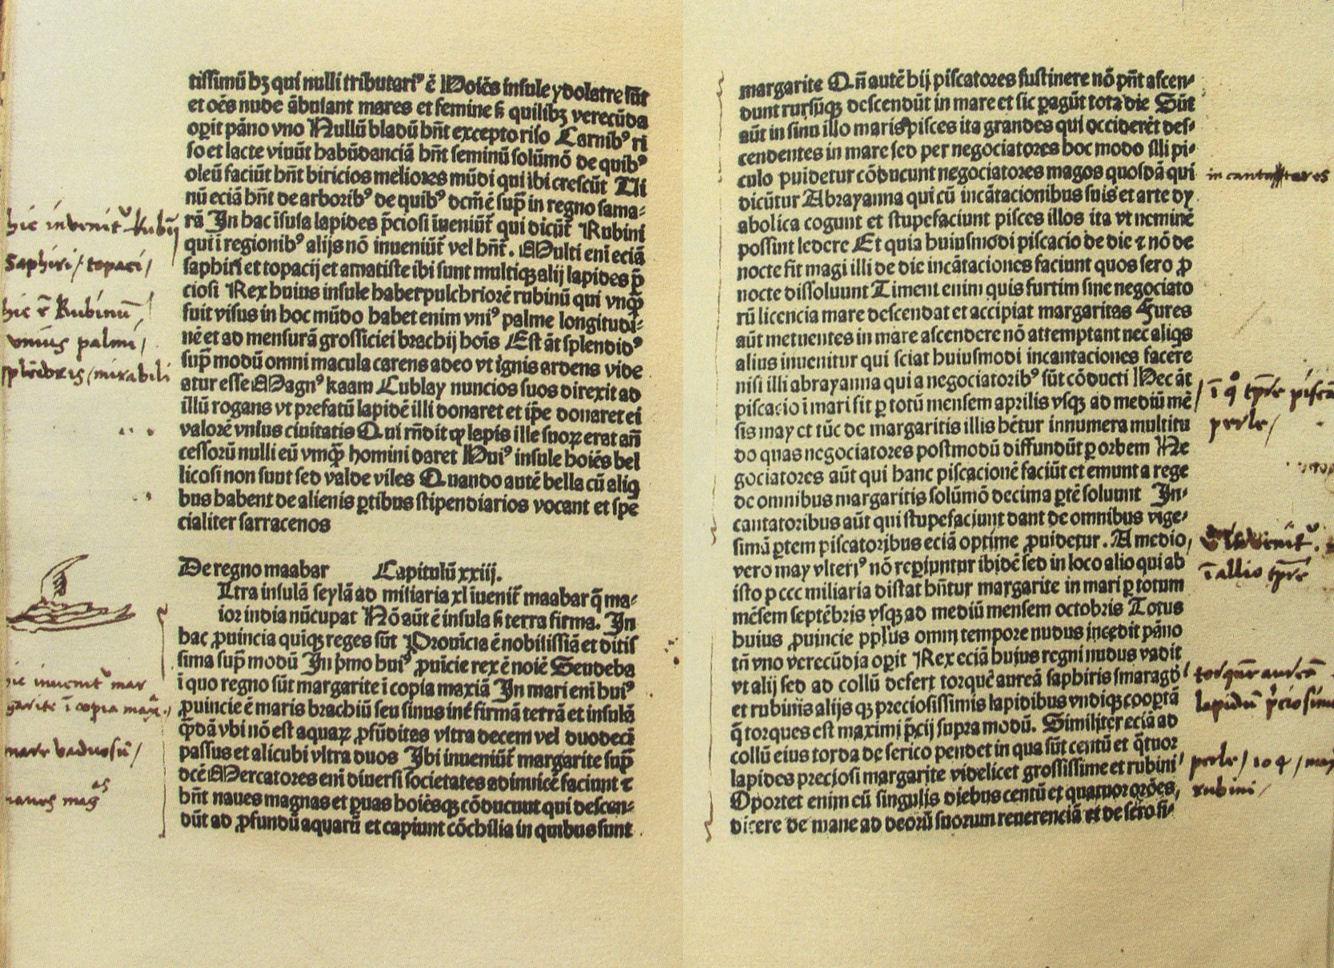 tissimū bꝫ qui nulli tributariꝰ ē Hoīēs insule ydolatre sūt
et oēs nude ābulant mares et femine sꝫ quilibꝫ verecūda
oꝑit pāno vno Nullū bladū hn̄t excepto riso Carnibꝰ ri
so et lacte viuūt habūdanciā hn̄t seminū solūmō de quibꝰ
oleū faciūt hn̄t biricios meliores mūdi qui ibi crescūt Ui
nū eciā hn̄t de arboribꝰ de quibꝰ dcm̄ ē sup̄ in regno sama-
rā In hac īsula lapides p̄ciosi īueniūt̄ qui dicūt̄ Rubini
qui ī regionibꝰ alijs nō inueniūt̄ vel hn̄t. Multi eni eciā
saphiri et topacij et amatiste ibi sunt multiqꝫ alij lapides p̄
ciosi Rex huius insule habet pulchriorē rubinū qui vnqꝫ̄
fuit visus in hoc mūdo habet enim vniꝰ palme longitudi-
nē et ad mensurā grossiciei brachij hoīs Est āt splendidꝰ
sup̄ modū omni macula carens adeo vt ignis ardens vide
atur esse Magnꝰ kaam Cublay nuncios suos direxit ad
illū rogans vt prefatū lapidē illi donaret et ip̄e donaret ei
valorē vnius ciuitatis Qui rn̄dit ꝙ lapis ille suoꝝ erat an̄
cessorū nulli eū vmqꝫ̄ homini daret Huiꝰ insule hoīēs bel
licosi non sunt sed valde viles Quando autē bella cū aliq̄
bus habent de alienis ꝑtibus stipendiarios vocant et spe
cialiter sarracenos
De regno maabar Capitulū xxiij.
Ltra insulā seylā ad miliaria xl īuenit̄ maabar q̄ ma-
ior india nūcupat Nō aūt ē insula sꝫ terra firma. In
hac ꝓuincia quiqꝫ reges sūt Prouīcia ē nobilissiā et ditis
sima sup̄ modū In p̄mo huiꝰ ꝓuīcie rex ē noīē Sendeba
ī quo regno sūt margarite ī copia maxiā In mari eni huiꝰ
ꝓuincie ē maris brachiū seu sinus int̄ firmā terrā et insulā
qꝫ̄dā vbi nō est aquaꝝ ꝓfūditas vltra decem vel duodecī
passus et alicubi vltra duos Ibi inueniūt̄ margarite sup̄
dcē Mercatores eni diuersi societates adinuicē faciunt ⁊
hn̄t naues magnas et ꝑuas hoīēsqꝫ cōducunt qui descen-
dūt ad ꝓfundū aquarū et capiunt cōchilia in quibus sunt
hic invenit̄ Rubīj
saphiri / topaci /
hic ē Rubinū
vnius palmi /
splēdoris / mirabili
hic invenit̄ mar
garite ī copia max.
mare vaduosū /
naves mag
margarite Qn̄ autē hij piscatores sustinere nō pn̄t ascen-
dunt rursūqꝫ descendūt in mare et sic ꝑagūt tota die Sūt
aūt in sinu illo maris pisces ita grandes qui occiderēt des-
cendentes in mare sed per negociatores hoc modo illi pi-
culo puidetur cōducunt negociatores magos quosdā qui
dicūtur Abrayanna qui cū incātacionibus suis et arte dy
abolica cogunt et stupefaciunt pisces illos ita vt neminē
possint ledere Et quia huiusmodi piscacio de die ⁊ nō de
nocte fit magi illi de die incātaciones faciunt quos sero ꝓ
nocte dissoluunt Timent enim quis furtim sine negociato
rū licencia mare descendat et accipiat margaritas Fures
aūt metuentes in mare ascendere nō attemptant nec aliqs
alius inuenitur qui sciat huiusmodi incantaciones facere
nisi illi abrayanna qui a negociatoribꝰ sūt cōducti Hec āt
piscacio ī mari fit ꝑ totū mensem aprilis vsqꝫ ad mediū mē
sis may et tūc de margaritis illis hētur innumera multitu
do quas negociatores postmodū diffundūt ꝑ orbem Ne
gociatores aūt qui hanc piscacionē faciūt et emunt a rege
de omnibus margaritis solūmō decimā ꝑtē soluunt In-
cantatoribus aūt qui stupefaciunt dant de omnibus vige-
simā ꝑtem piscatoribus eciā optime ꝓuidetur. A medio
vero may vlteriꝰ nō reꝑiuntur ibidē sed in loco alio qui ab
isto p ccc miliaria distat hn̄tur margarite in mari ꝑ totum
mēsem septēbris vsqꝫ ad mediū mensem octobris Totus
huius ꝓuincie pplus omni tempore nudus incedit pāno
tn̄ vno verecūdia oꝑit Rex eciā huius regni nudus vadit
vt alij sed ad collū defert torquē aureā saphiris smaragdꝰ
et rubinis alijs qꝫ preciosissimis lapidibus vndiqꝫ cooꝑtā
q̄ torques est maximi p̄cij supra modū. Similiter eciā ad
collū eius torda de serico pendet in qua sūt centū et q̄tuor
lapides preciosi margarite videlicet grossissime et rubini
Oportet enim cū singulis diebus centū et quatuor orōes
dicere de mane ad deorū suorum reuerenciā et de sero si-
in cantatores
ī q̊ tp̄re piscā
perle /
ī allio tp̄re
torquē aureā
lapidū p̄ciosiu
perle / 104 /
rubini /